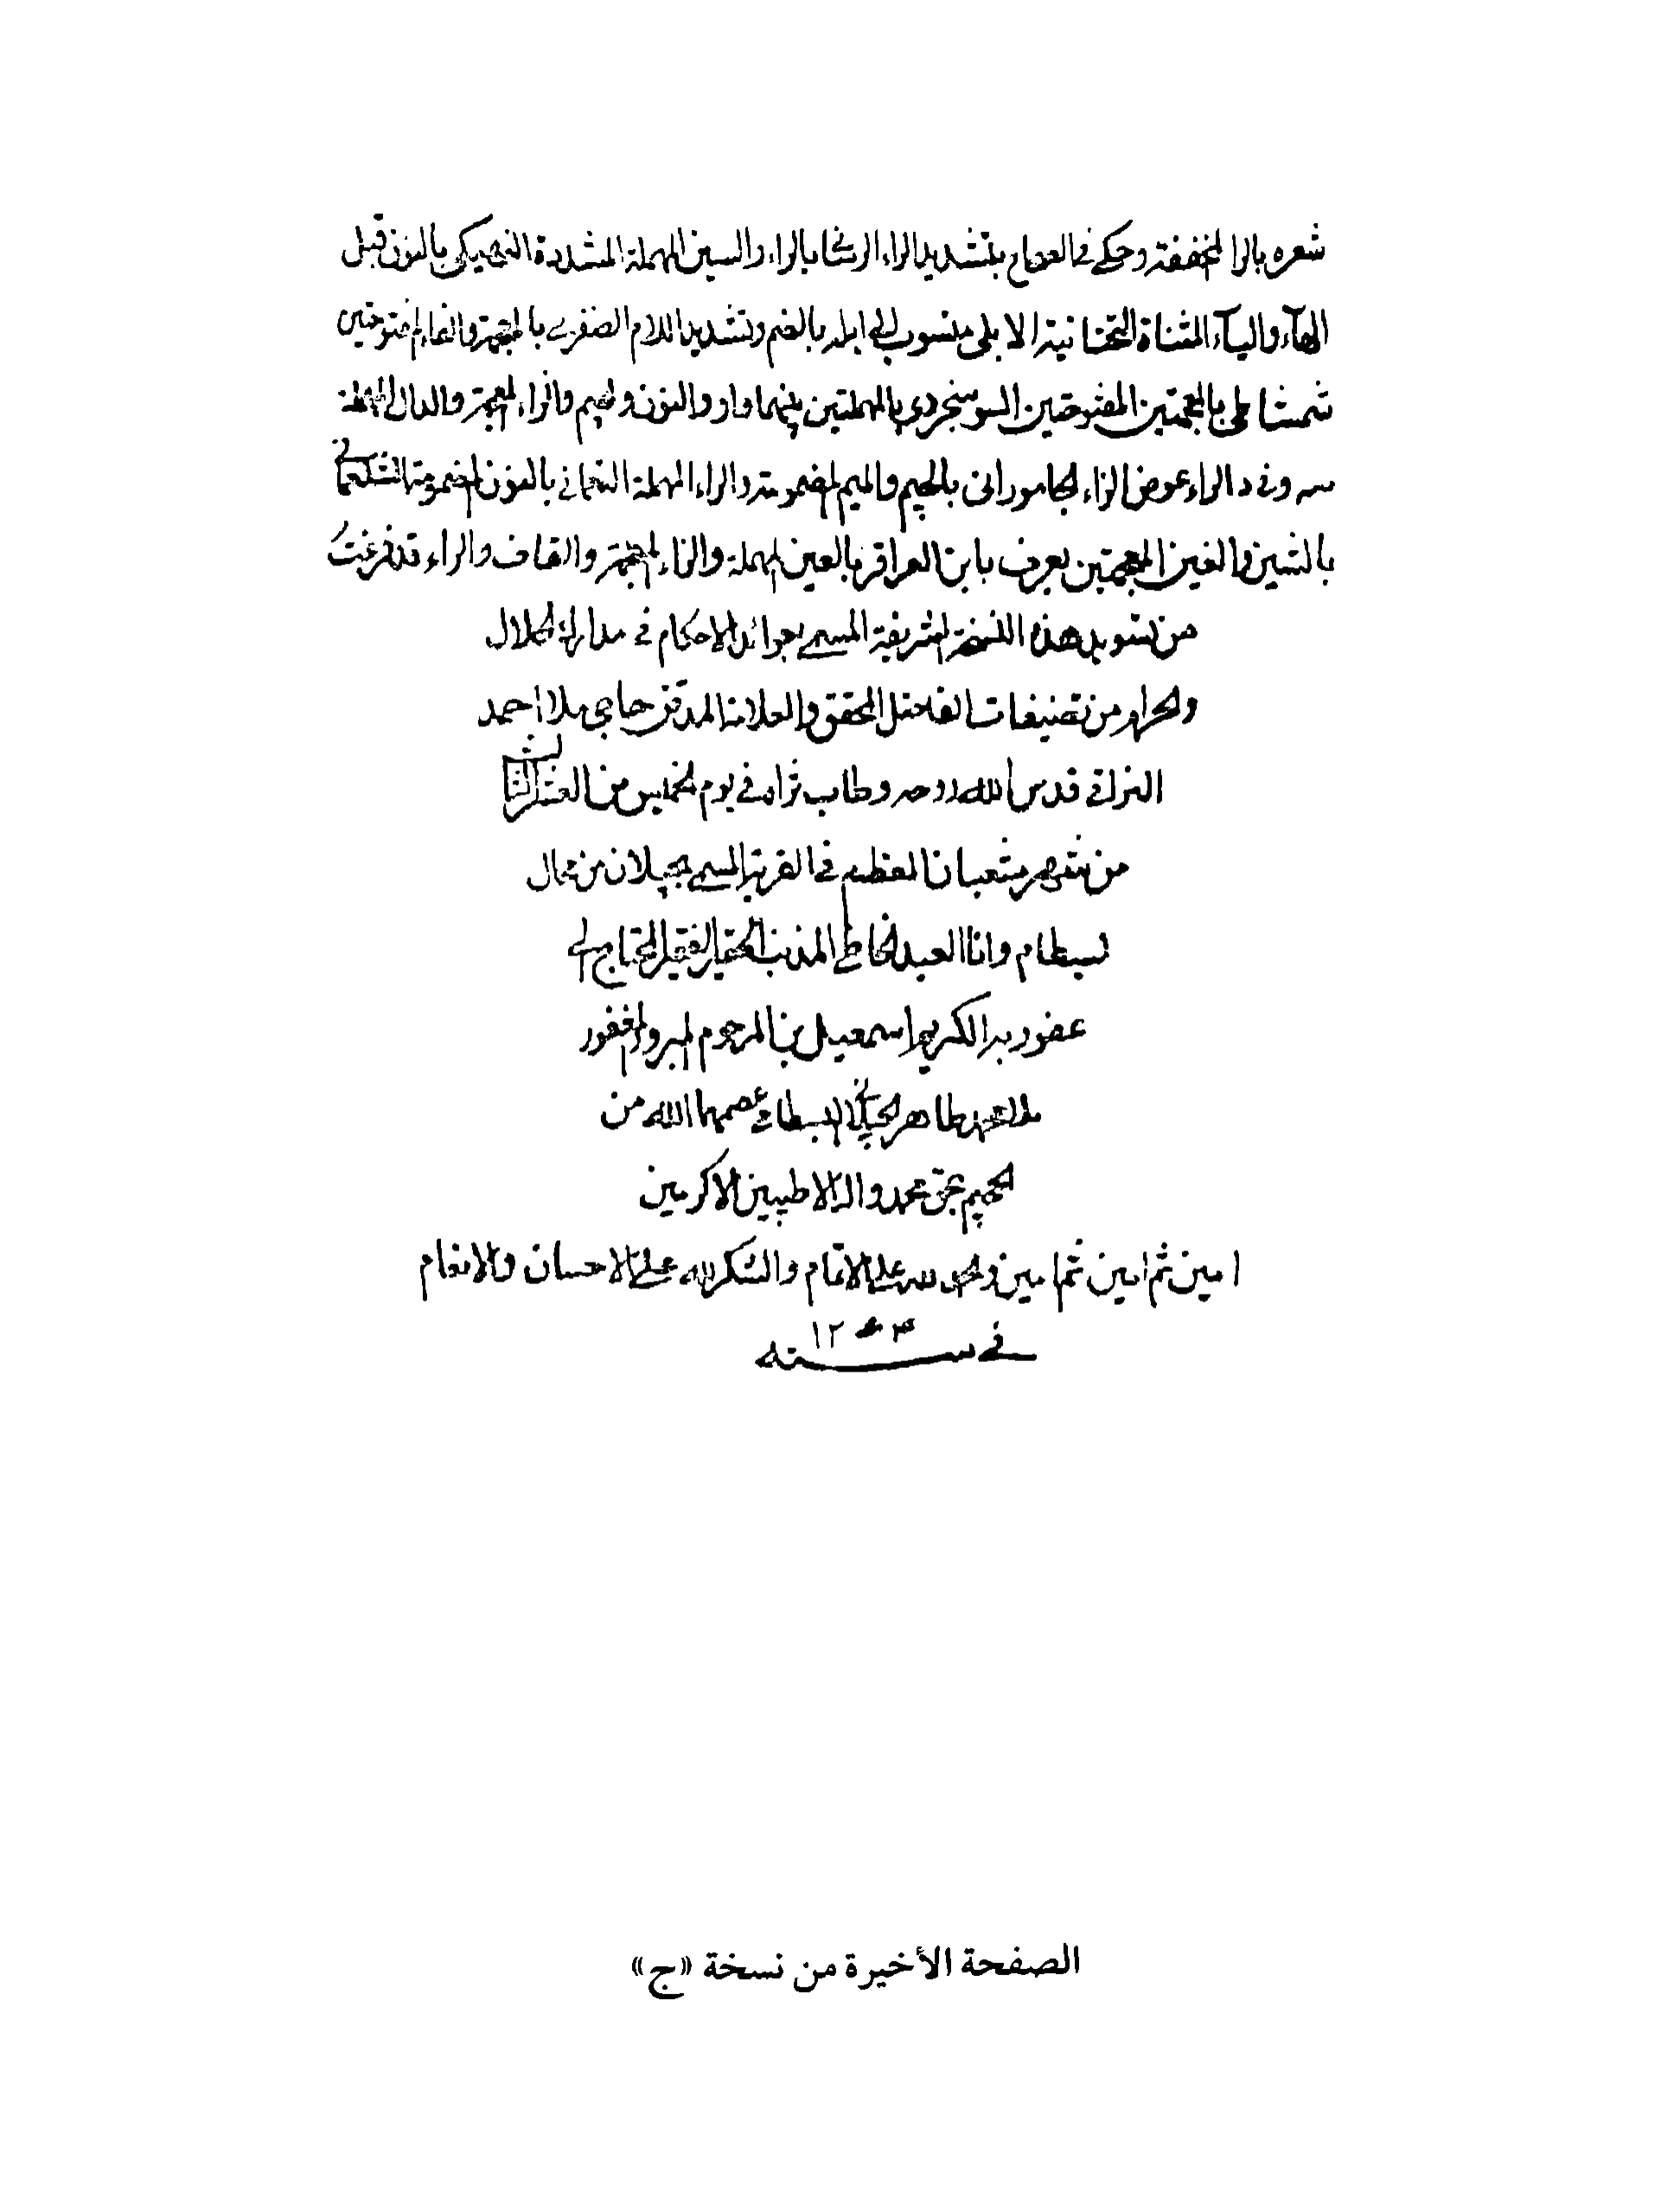 شعره بالرا المخففة وحكى فى الصحاح بتشديد الراء الرسحا بالراء والسين المهملة المشددة النهيكى بالنون قبل
الهآء واليآء المثناة التحتانية الابلى منسوب الى ابله بالضم وتشديد اللام الضفرى با المعجمة والفاء المفتوحتين
شمشاطى بالمعجمتين المفتوحتين السوسنجردى بالمهملتين بينهما واو والنون والجيم والراء المعجمة والدال المهملة
الراء عوض الزاء الجامورانى بالجيم والميم المضمومة والراء المهملة النعمانى بالنون المضمومة الشلمغانى
بالشين والغين المعجمتين يعرف بابن العزاقر بالعين المهملة والزاء المعجمة والقاف والراء قد فرغتُ
من تسويد هذه النسخة الشريفة المسمى بعوائد الاحكام فى مدارك الحلال
والحرام من تصنيفات الفاضل المحقق والعلامة المدقق حاجى ملا احمد
النراقى قدس الله روحه وطاب ثراه فى يوم الخميس من العشر الثالث
من شهر شعبان المعظم فى القرية المسمى بجيلان من محال
بسطام وانا العبد الخاطى المذنب الحقير الفقير المحتاج الى
عفو ربه الكريم اسمعيل بن المرحوم المبرور المغفور
ملا محمد طاهر الجيلانى البسطامى عصمهما الله من
الجحيم بحق محمد واله الاطيبين الاكرمين
امين ثم امين ثم امين والحمد لله على الاتمام والشكر لله على الاحسان والانعام
فى سنه
الصفحة الأخيرة من نسخة «ج»